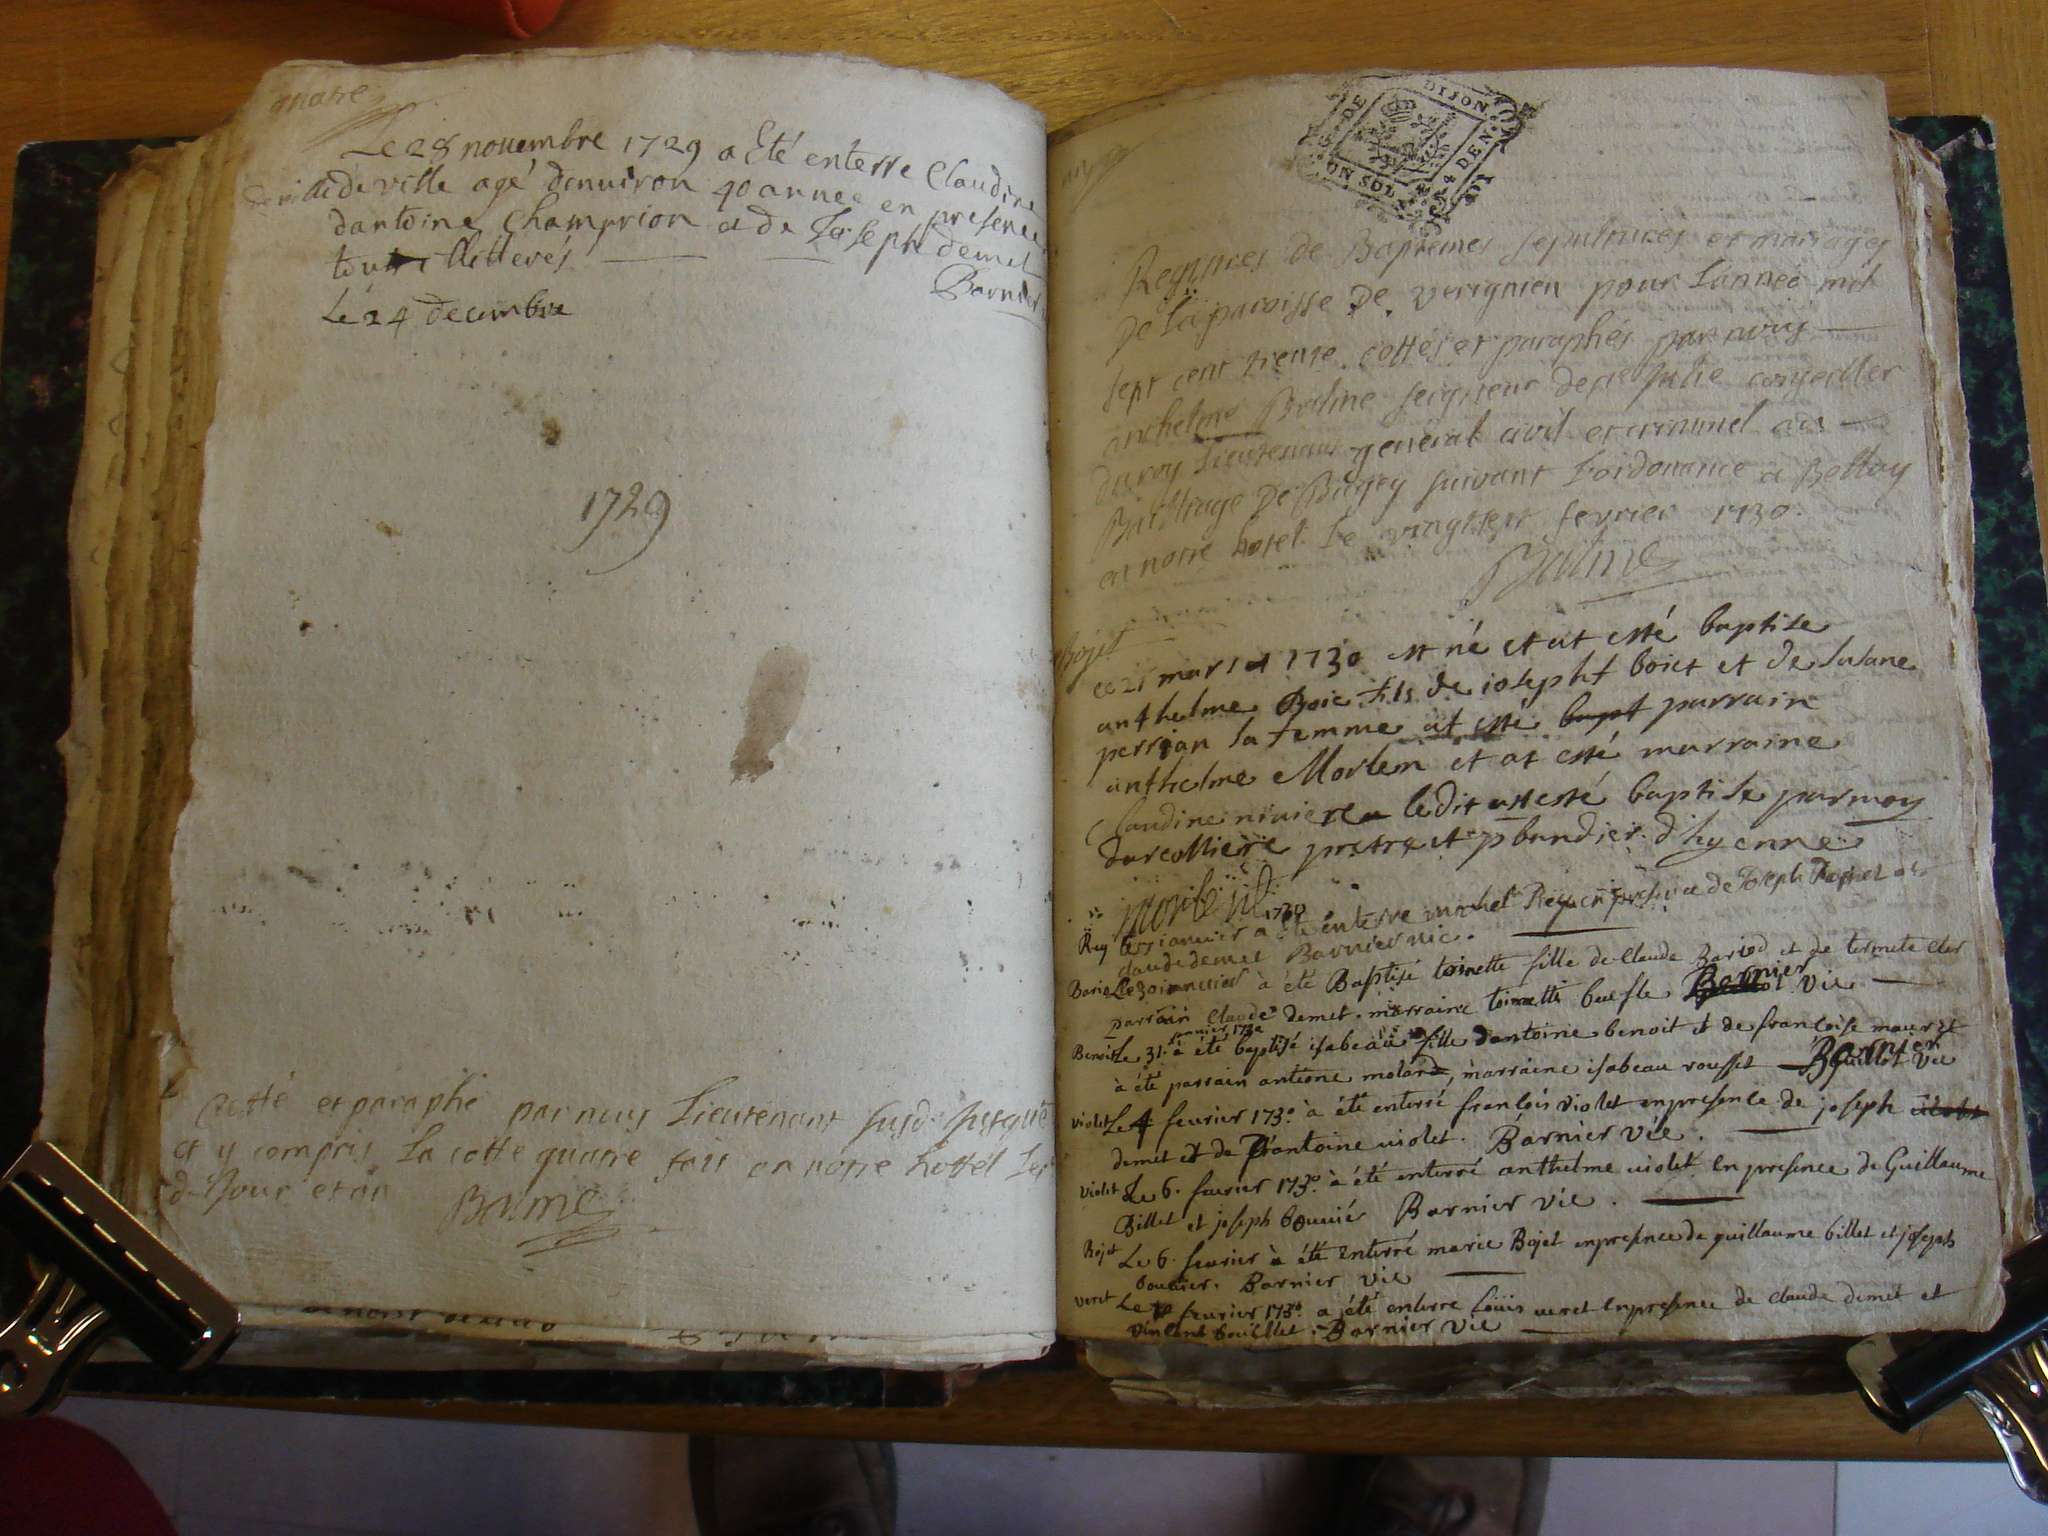 quatre
Le 28 novembre 1729 a Eté enterre Claudine
deville deville agé denuiron 40 annee en presence
dantoine Champrion a de Joseph demet
tous illitterés
Barnier
Le 24 decembre
1729
Cotté et paraphé par nous Lieutenant susd. jusque
et y compris La cotte quatre fait en notre hottel Les
d. Jour et an Balme
DE DIJON
4 DEN.
UN SOL
Registres de Baptemes sepultures et mariages
De La paroisse De virignien pour Lannéé mil
sept cent trente cottés et paraphés par nous
anthelme Balme seigneur de Ste Julie conseiller
du roy Lieutenant general civil et criminel au
Bailliage De Bugey suivant Lordonance a Bellay
en notre hotel Le vingtsept fevrier 1730.
Balme
Bojet
ce 21 mars 1730 est né et at esté baptise
anthelme Boie fils de iosepht boiet et de susane
perrian sa femme at esté bapt parrain
anthelme Morlem et at esté marraine
Claudine niuiere ledit at esté baptise par moy
darcolliere pretre et d'hyenne
Rey Le ianuier 1730 a été enterre michel Rey en presence de Joseph
claude demet Barnier vic.
Le 30 ianuier à été Baptisé toinette fille de Claude Bariod et de
parrain Claude demet. marraine toinette Barnier vic
Benoit Le 31. janvier 1730 à été baptisé isabeau fille dantoine benoit et de francoise
à été parrain antoine molard, marraine isabeau rousset Barnier vic
violet Le 4 feurier 1730 à été enterré francois violet en presence de joseph
demet et de antoine violet. Barnier vic.
violet Le 6. feurier 1730 à été enterré anthelme violet En presence de Guillaume
Billet et joseph bouuié Barnier vic.
Bojet Le 6. feurier à été enterré marie Bojet en presence de guillaume billet et joseph
bouuier. Barnier vic
veret Le feurier 1730 a été enterre Louis veret En presence de claude demet et
vincent bouillet. Barnier vic